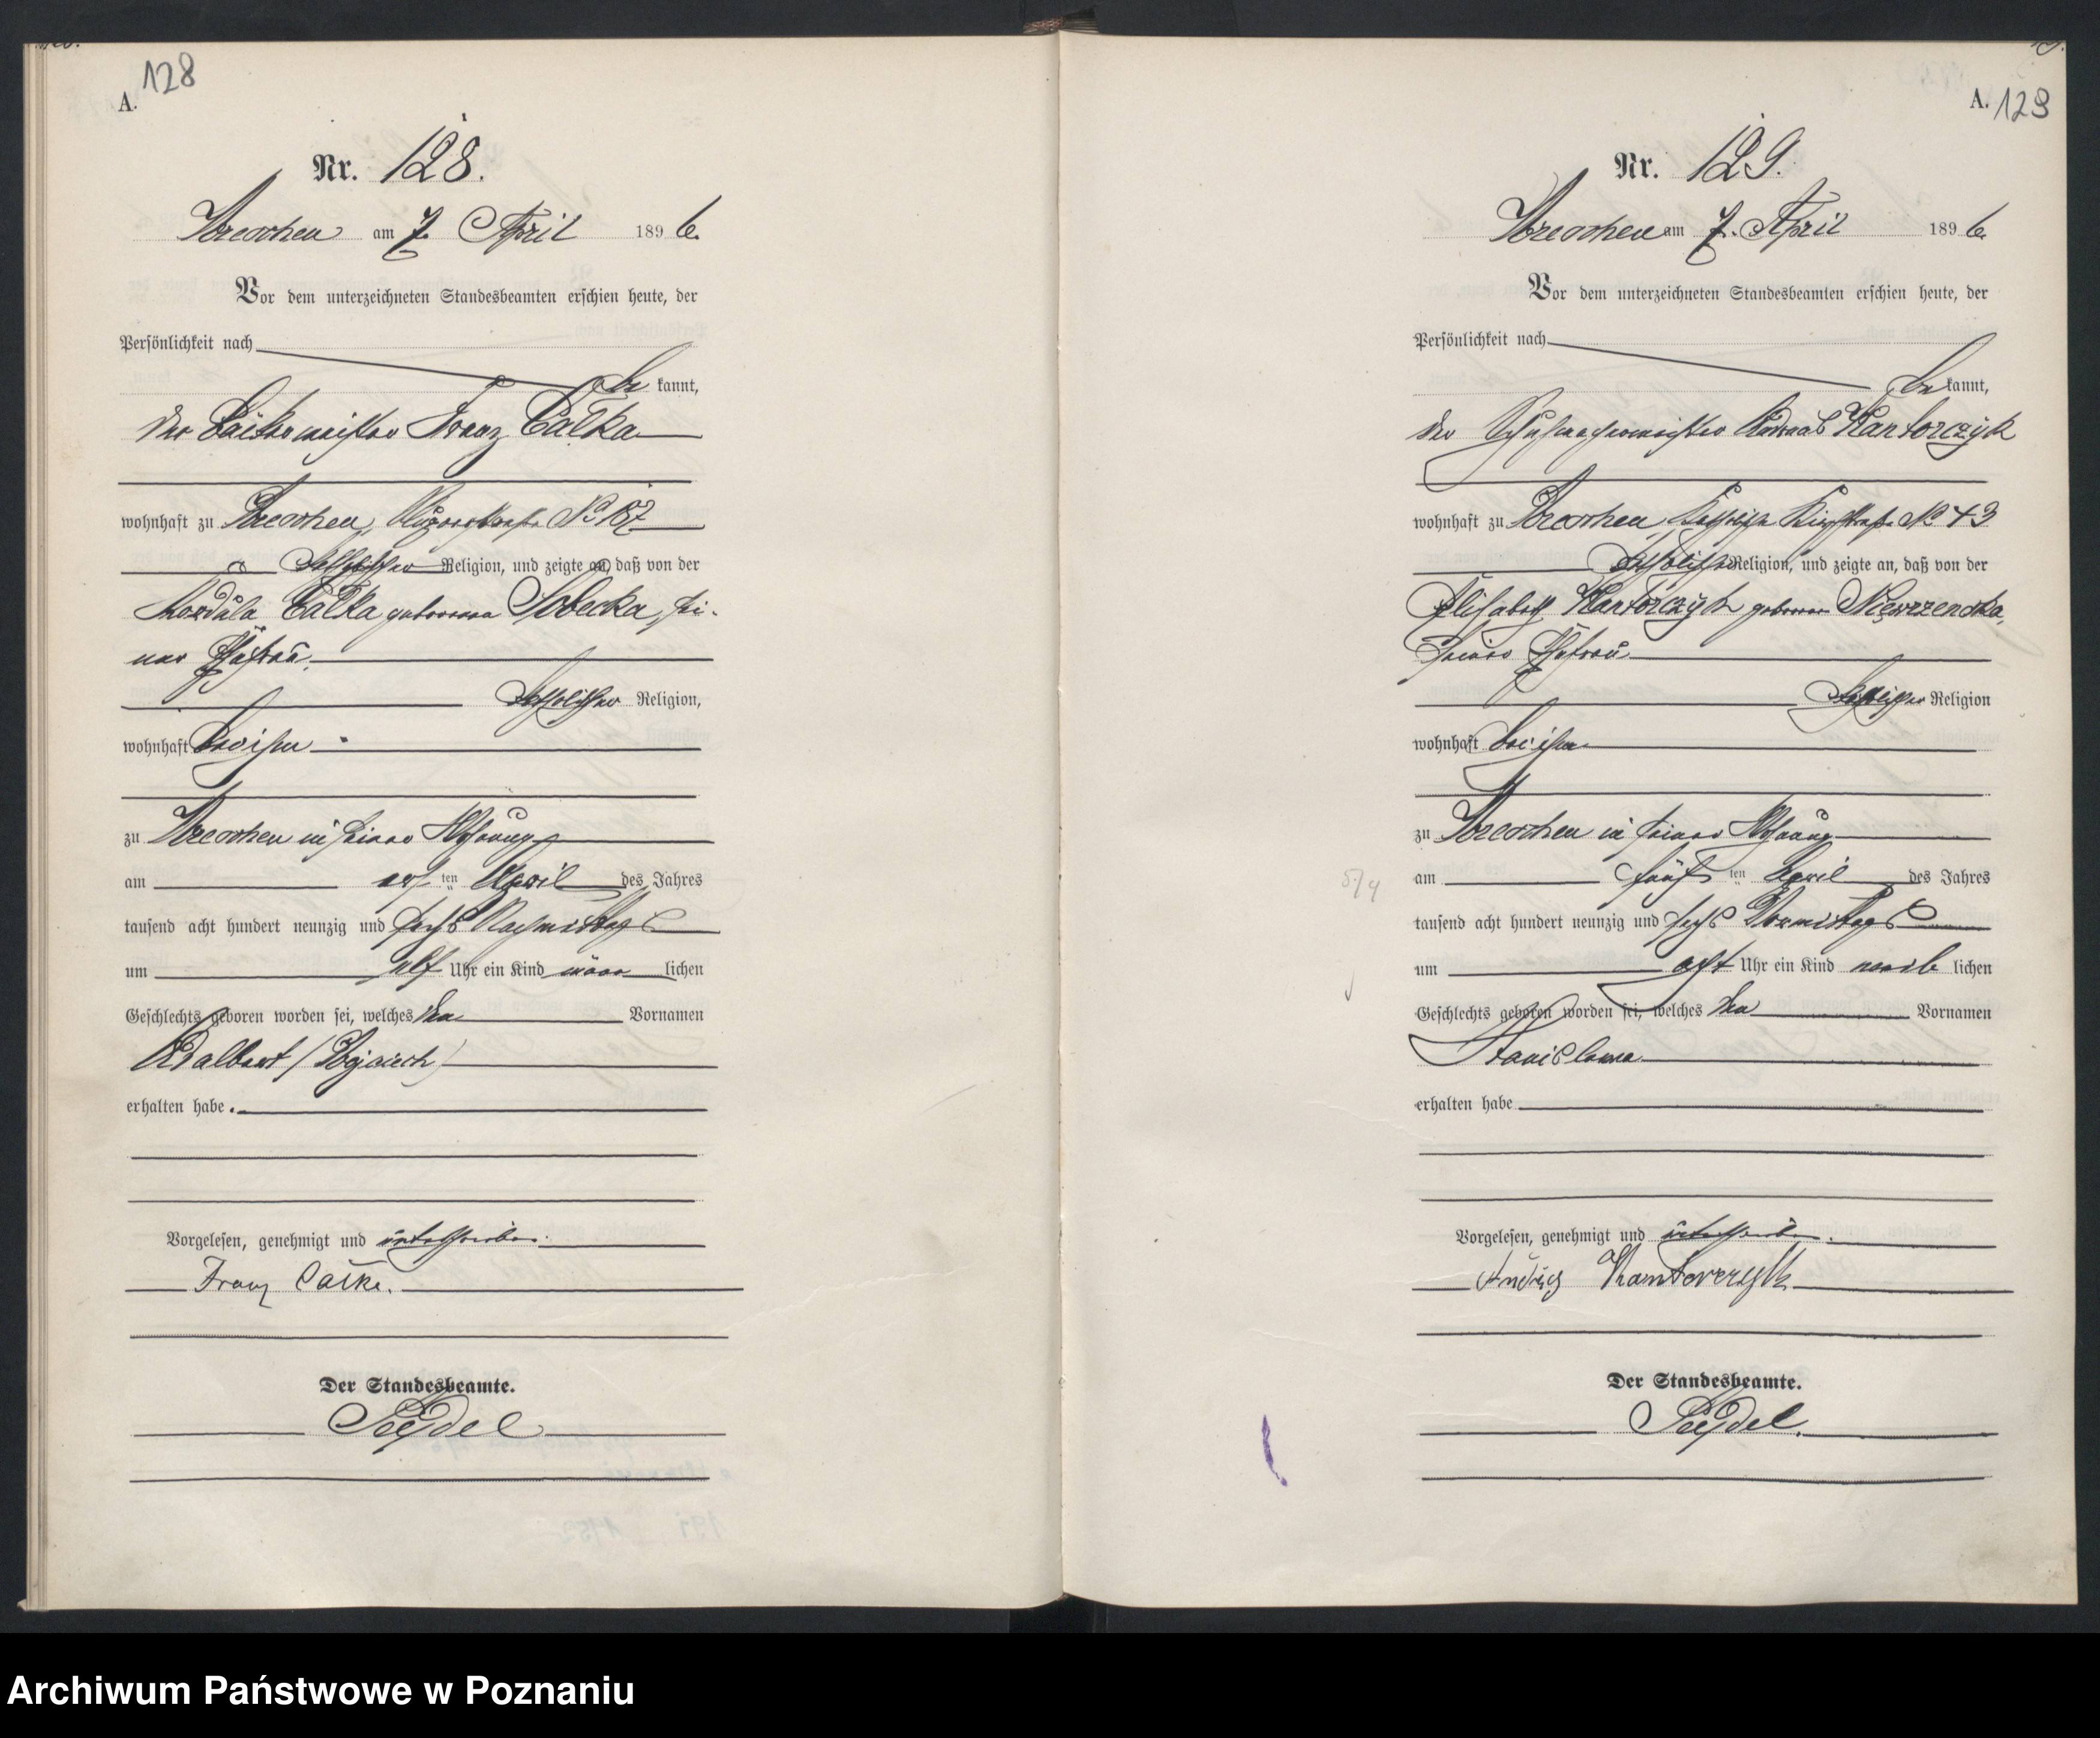 128
A.
Nr. 128.
Wreschen am 7. April 1896.
Vor dem unterzeichneten Standesbeamten erschien heute, der
Persönlichkeit nach
be kannt,
der Bäckermeister Franz Całka
wohnhaft zu Wreschen, No 187
katholischer Religion, und zeigte an, daß von der
Kordula Całka geborene Sobecka, sei-
ner Ehefrau
katholischer Religion,
wohnhaft bei ihm
zu Wreschen in seiner Wohnung
am ersten April des Jahres
tausend acht hundert neunzig und sechs Nachmittags
um elf Uhr ein Kind männlichen
Geschlechts geboren worden sei, welches den Vornamen
Adalbert (Wojciech)
erhalten habe.
Vorgelesen, genehmigt und unterschrieben.
Franz Całka.
Der Standesbeamte.
Seydel
A. 129
Nr. 129.
Wreschen am 7. April 1896.
Vor dem unterzeichneten Standesbeamten erschien heute, der
Persönlichkeit nach
be kannt,
der Schuhmachermeister Andreas Kantorczyk
wohnhaft zu Wreschen, No 43
katholischer Religion, und zeigte an, daß von der
Elisabeth Kantorczyk geborene
seiner Ehefrau
katholischer Religion
wohnhaft bei ihm
zu Wreschen in seiner Wohnung
am fünften April des Jahres
tausend acht hundert neunzig und sechs Vormittags
um acht Uhr ein Kind weiblichen
Geschlechts geboren worden sei, welches den Vornamen
Stanislawa
erhalten habe
Vorgelesen, genehmigt und unterschrieben.
Kantorczyk
Der Standesbeamte.
Seydel.
5/4
Archiwum Państwowe w Poznaniu